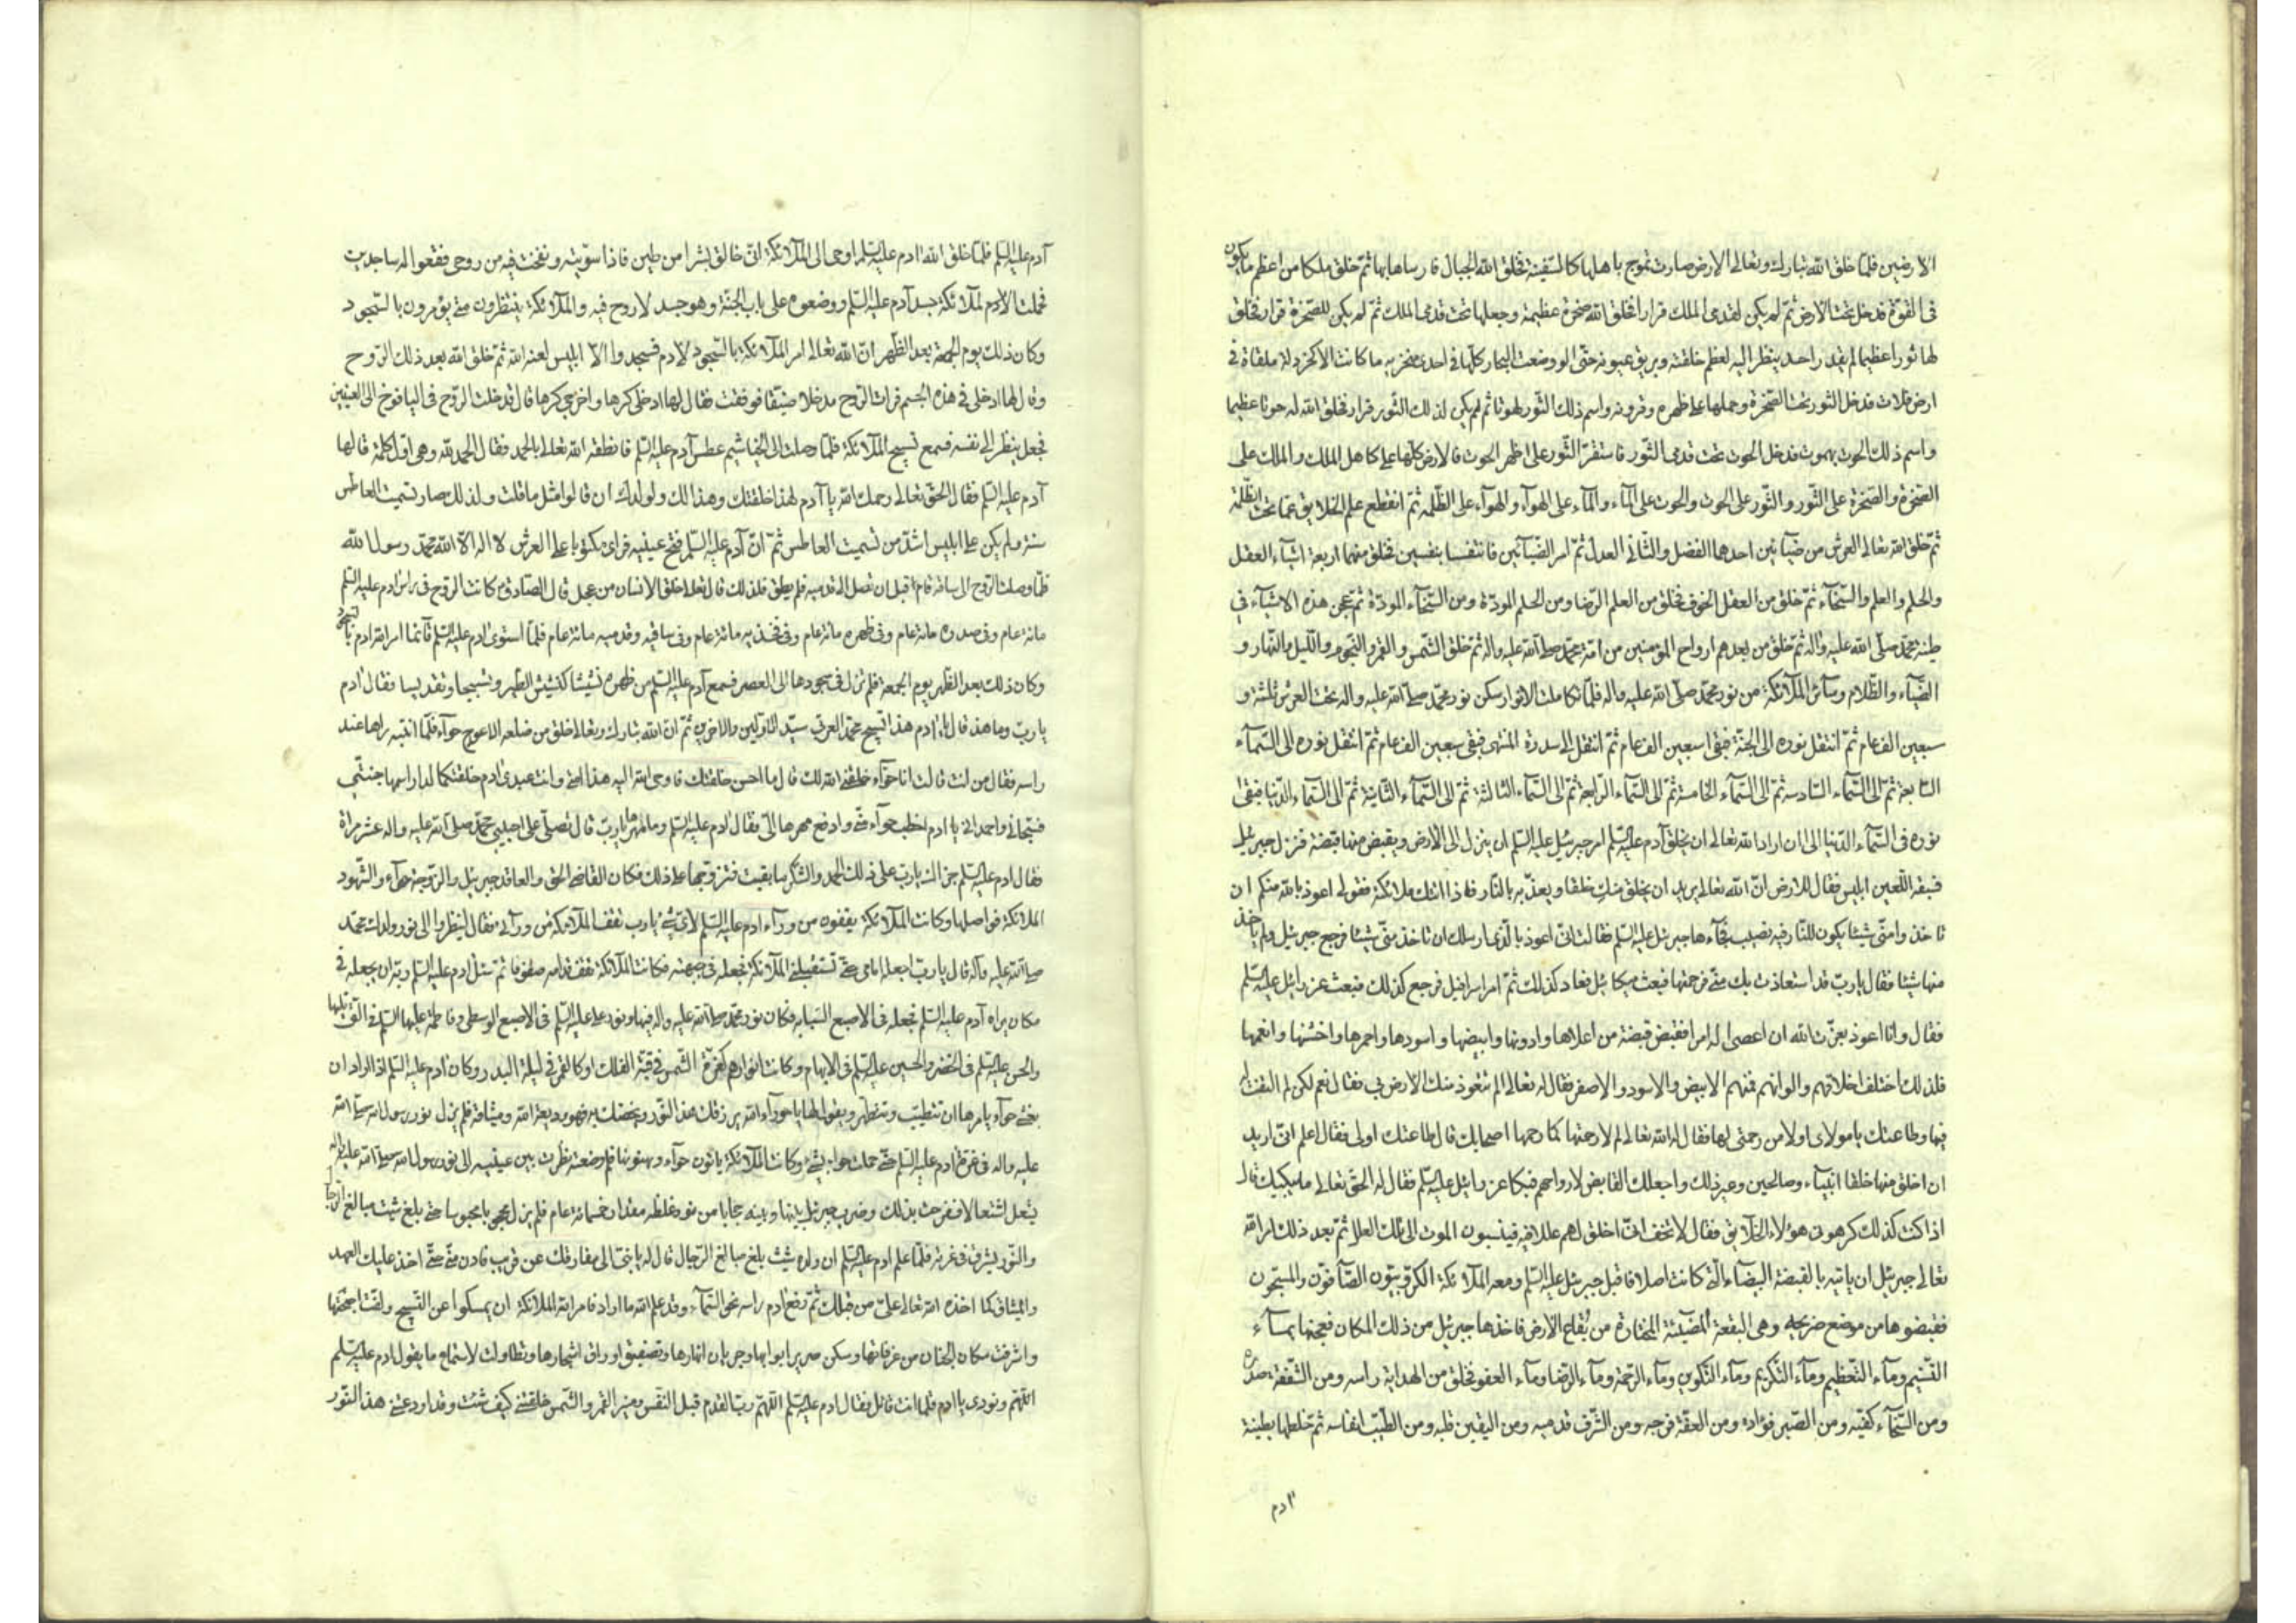 الارضين فلمّا خلق الله تبارك وتعالى الارض صارت تموج باهلها كالسّفينة فخلق الله الجبال فارساها بها ثمّ خلق ملكا من اعظم ما يكون
فى القوّة فدخل تحت الارض ثمّ لم يكن لقدمى الملك قرار فخلق الله صخرة عظيمة وجعلها تحت قدمى الملك ثمّ لم يكن للصّخرة قرار فخلق
لها ثورا عظيما لم يقدر احد ينظر اليه لعظم خلقته وبريق عيونه حتّى لو وضعت البحار كلّها فى احدى منخريه ما كانت الا كخردلة ملقاة فى
ارض فلات فدخل الثور تحت الصّخرة وحملها على ظهره وقرونه واسم ذلك الثّور لهوتا ثم لم يكن لذلك الثّور قرار فخلق الله له حوتا عظيما
واسم ذلك الحوت بهموت فدخل الحوت تحت قدمى الثّور فاستقرّ الثّور على ظهر الحوت فالارض كلّها على كاهل الملك والملك على
الصّخرة والصّخرة على الثّور والثّور على الحوت والحوت على المآء والمآء على الهوآء والهوآء على الظّلمة ثمّ انقطع علم الخلايق عمّا تحت الظّلمة
ثمّ خلق الله تعالى العرش من ضيآئين احدهما الفضل والثّانى العدل ثمّ امر الضّيآئين فانتفسا بنفسين فخلق منهما اربعة اشيآء العقل
والحلم والعلم والسّخآء ثمّ خلق من العقل الخوف فخلق من العلم الرّضا ومن الحلم المودّة ومن السّخآء المودّة ثمّ عجن هذه الاشيآء فى
طينة محمّد صلّى الله عليه واله ثمّ خلق من بعدهم ارواح المؤمنين من امّة محمّد صلى الله عليه واله ثمّ خلق الشّمس والقمر والنّجوم واللّيل والنّهار و
الضّيآء والظّلام وسآئر الملآئكة من نور محمّد صلّى الله عليه واله فلمّا تكاملت الانوار سكن نور محمّد صلى الله عليه واله تحت العرش ثلثة و
سبعين الف عام ثمّ انتقل نوره الى الجنّة فبقى سبعين الف عام ثمّ انتقل الى سدرة المنتهى فبقى سبعين الف عام ثمّ انتقل نوره الى السّمآء
السّابعة ثمّ الى السّمآء السّادسة ثمّ الى السّمآء الخامسة ثمّ الى السّمآء الرّابعة ثمّ الى السّمآء الثّالثة ثمّ الى السّمآء الثّانية ثمّ الى السّمآء الدّنيا فبقى
نوره فى السّمآء الدّنيا الى ان اراد الله تعالى ان يخلق آدم عليه السّلم امر جبرئيل عليه السّلم ان ينزل الى الارض ويقبض منها قبضة فنزل جبرئيل
فسبقه اللّعين ابليس فقال للارض انّ الله تعالى يريد ان يخلق منك خلقا ويعذّبه بالنّار فاذا اتتك ملائكته فقولى اعوذ بالله منكم ان
تاخذوا منّى شيئا يكون للنّار فيه نصيب فجآءها جبرئيل عليه السّلم فقالت انّى اعوذ بالّذى ارسلك ان تاخذ منّى شيئا فرجع جبرئيل ولم ياخذ
منها شيئا فقال يا ربّ قد استعاذت بك منّى فرحمتها فبعث ميكائيل فعاد كذلك ثمّ امر اسرافيل فرجع كذلك فبعث عزرائيل عليه السّلم
فقال وانا اعوذ بعزّت الله ان اعصى له امرا فقبض قبضة من اعلاها وادونها وابيضها واسودها واحمرها واخشنها وانعمها
فلذلك اختلف اخلاقهم والوانهم فمنهم الابيض والاسود والاصفر فقال له تعالى الم تتعوّذ منك الارض بى فقال نعم لكن لم التفت
فيها وطاعتك يا مولاى اولى من رحمتى لها فقال له الله تعالى لم لا رحمتها كما رحمها اصحابك قال طاعتك اولى فقال اعلم انّى اريد
ان اخلق منها خلقا انبيآء وصالحين وغير ذلك واجعلك القابض لارواحهم فبكا عزرائيل عليه السّلم فقال له الحقّ تعالى ما يبكيك قال
اذا كنت كذلك كرهونى هؤلاء الخلآيق فقال لا تخف انّى اخلق لهم عللا فينسبون الموت الى تلك العلل ثمّ بعد ذلك امر الله
تعالى جبرئيل ان ياتيه بالقبضة البيضآء الّتى كانت اصلا فاقبل جبرئيل عليه السّلم ومعه الملآئكة الكرّوبيّون الصّآفّون والمسبّحون
فقبضوها من موضع ضريحه وهى البقعة المضيئة المختارة من بقاع الارض فاخذها جبرئيل من ذلك المكان فعجنها بمآء
التّسنيم ومآء التّعظيم ومآء التّكريم ومآء التّكوين ومآء الرّحمة ومآء الرّضا ومآء العفو فخلق من الهداية راسه ومن الشّفقة صدره
ومن السّخآء كفّيه ومن الصّبر فؤاده ومن العفّة فرجه ومن الشّرف قدميه ومن اليقين قلبه ومن الطّيب انفاسه ثمّ خلطها بطينة
ادم
آدم عليه السّلم فلمّا خلق الله ادم عليه السّلم اوحى الى الملآئكة انّى خالق بشرا من طين فاذا سوّيته ونفخت فيه من روحى فقعوا له ساجدين
فحملت الملآئكة جسد آدم عليه السّلم ووضعوه على باب الجنّة وهو جسد لا روح فيه والملآئكة ينتظرون متى يؤمرون بالسّجود
وكان ذلك يوم الجمعة بعد الظّهر انّ الله تعالى امر الملآئكة بالسّجود لادم فسجدوا الّا ابليس لعنه الله ثمّ خلق الله بعد ذلك الرّوح
وقال لها ادخلى فى هذه الجسم فرات الرّوح مدخلا ضيّقا فوقفت فقال لها ادخلى كرها واخرجى كرها قال فدخلت الرّوح فى اليافوخ الى العينين
فجعل ينظر الى نفسه فسمع تسبيح الملآئكة فلمّا وصلت الى الخياشيم عطس آدم عليه السّلم فانطقه الله تعالى بالحمد فقال الحمد لله وهى اوّل كلمة قالها
آدم عليه السّلم فقال الحقّ تعالى رحمك الله يا آدم لهذا خلقتك وهذا لك ولولدك ان قالوا مثل ما قلت ولذلك صار تسميت العاطس
سنة ولم يكن على ابليس اشدّ من تسميت العاطس ثمّ انّ آدم عليه السّلم فتح عينيه فراى مكتوبا على العرش لا اله الّا الله محمّد رسول الله
فلمّا وصلت الرّوح الى ساقه قام قبل ان تصل الى قدميه فلم يطق فلذلك قال تعالى خلق الانسان من عجل قال الصّادق كانت الرّوح فى راس ادم عليه السّلم
مائة عام وفى صدره مائة عام وفى ظهره مائة عام وفى فخذيه مائة عام وفى ساقيه وقدميه مائة عام فلمّا استوى ادم عليه السّلم قآئما امر الله ادم بالسّجود
وكان ذلك بعد الظّهر يوم الجمعة فلم تزل فى سجودها الى العصر فسمع آدم عليه السّلم من ظهره نشيشا كنشيش الطّير وتسبيحا وتقديسا فقال ادم
يا ربّ وما هذا قال يا ادم هذا تسبيح محمّد العربى سيّد الاوّلين والاخرين ثمّ انّ الله تبارك وتعالى خلق من ضلعه الاعوج حوّآء فلمّا انتبه راها عند
راسه فقال من انت قالت انا حوّآء خلقنى الله لك قال ما احسن خلقتك فاوحى الله اليه هذه امتى وانت عبدى ادم خلقتكما لدار اسمها جنّتى
فسبّحانى واحمدانى يا ادم اخطب حوّآء منّى وادفع مهرها الىّ فقال ادم عليه السّلم وما مهرها يا ربّ قال تصلّى على حبيبى محمّد صلى الله عليه واله عشر مرّاة
فقال ادم عليه السّلم جزاك يا ربّ على ذلك الحمد والشّكر ما بقيت فتزوّجها على ذلك فكان القاضى الحقّ والعاقد جبرئيل والزّوجة حوّآء والشّهود
الملائكة فواصلها وكانت الملآئكة يقفون من ورآء ادم عليه السّلم لاىّ شئ يا رب تقف الملآئكة من ورآئى فقال لينظروا الى نور ولدك محمّد
صلى الله عليه واله قال يا ربّ اجعله امامى حتّى تستقبلنى الملآئكة فجعله فى جبهته فكانت الملآئكة تقف قدّامه صفوفا ثمّ سئل ادم عليه السّلم ربّه ان يجعله فى
مكان يراه آدم عليه السّلم فجعله فى الاصبع السّبابة فكان نور محمّد صلى الله عليه واله فيها ونور على عليه السّلم فى الاصبع الوسطى وفاطمة عليها السّلم فى الّتى تليها
والحسن عليه السّلم فى الخنصر والحسين عليه السّلم فى الابهام وكانت انوارهم كغرّة الشّمس فى قبّة الفلك او كالقمر فى ليلة البدر وكان ادم عليه السّلم اذا اراد ان
يغشى حوّآء يامرها ان تتطيّب وتتطهّر ويقول لها يا حوّآء الله يرزقك هذا النّور ويخصّك به فهو وديعة الله وميثاقه فلم يزل نور رسول الله صلى الله
عليه واله فى غرّة ادم عليه السّلم حتّى حملت حوّاء بشيث وكانت الملآئكة ياتون حوّآء ويهنّونها فلمّا وضعته نظرت بين عينيه الى نور رسول الله صلى الله عليه واله
يشتعل اشتعالا ففرحت بذلك وضرب جبرئيل بينها وبينه حجابا من نور غلظه مقدار خمسمائة عام فلم يزل محجوبا محبوسا حتّى بلغ شيث مبالغ الرّجال
والنّور يشرق فى غرّته فلمّا علم ادم عليه السّلم ان ولده شيث بلغ مبالغ الرّجال قال له يا بنىّ انّى مفارقك عن قريب فادن منّى حتّى اخذ عليك العهد
والميثاق كما اخذه الله تعالى علىّ من قبلك ثمّ رفع ادم راسه نحو السّمآء وقد علم الله ما اراد فامر الله الملائكة ان يمسكوا عن التّسبيح ولفّت اجنحتها
واشرفت سكّان الجنان من غرفاتها وسكن صرير ابوابها وجريان انهارها وتصفيق اوراق اشجارها وتطاولت لاستماع ما يقول ادم عليه السّلم
اللّهم ونودى يا ادم قل ما انت قائل فقال ادم عليه السّلم اللّهمّ ربّ القدم قبل النّفس ومنير القمر والشّمس خلقتنى كيف شئت وقد اودعتنى هذا النّور